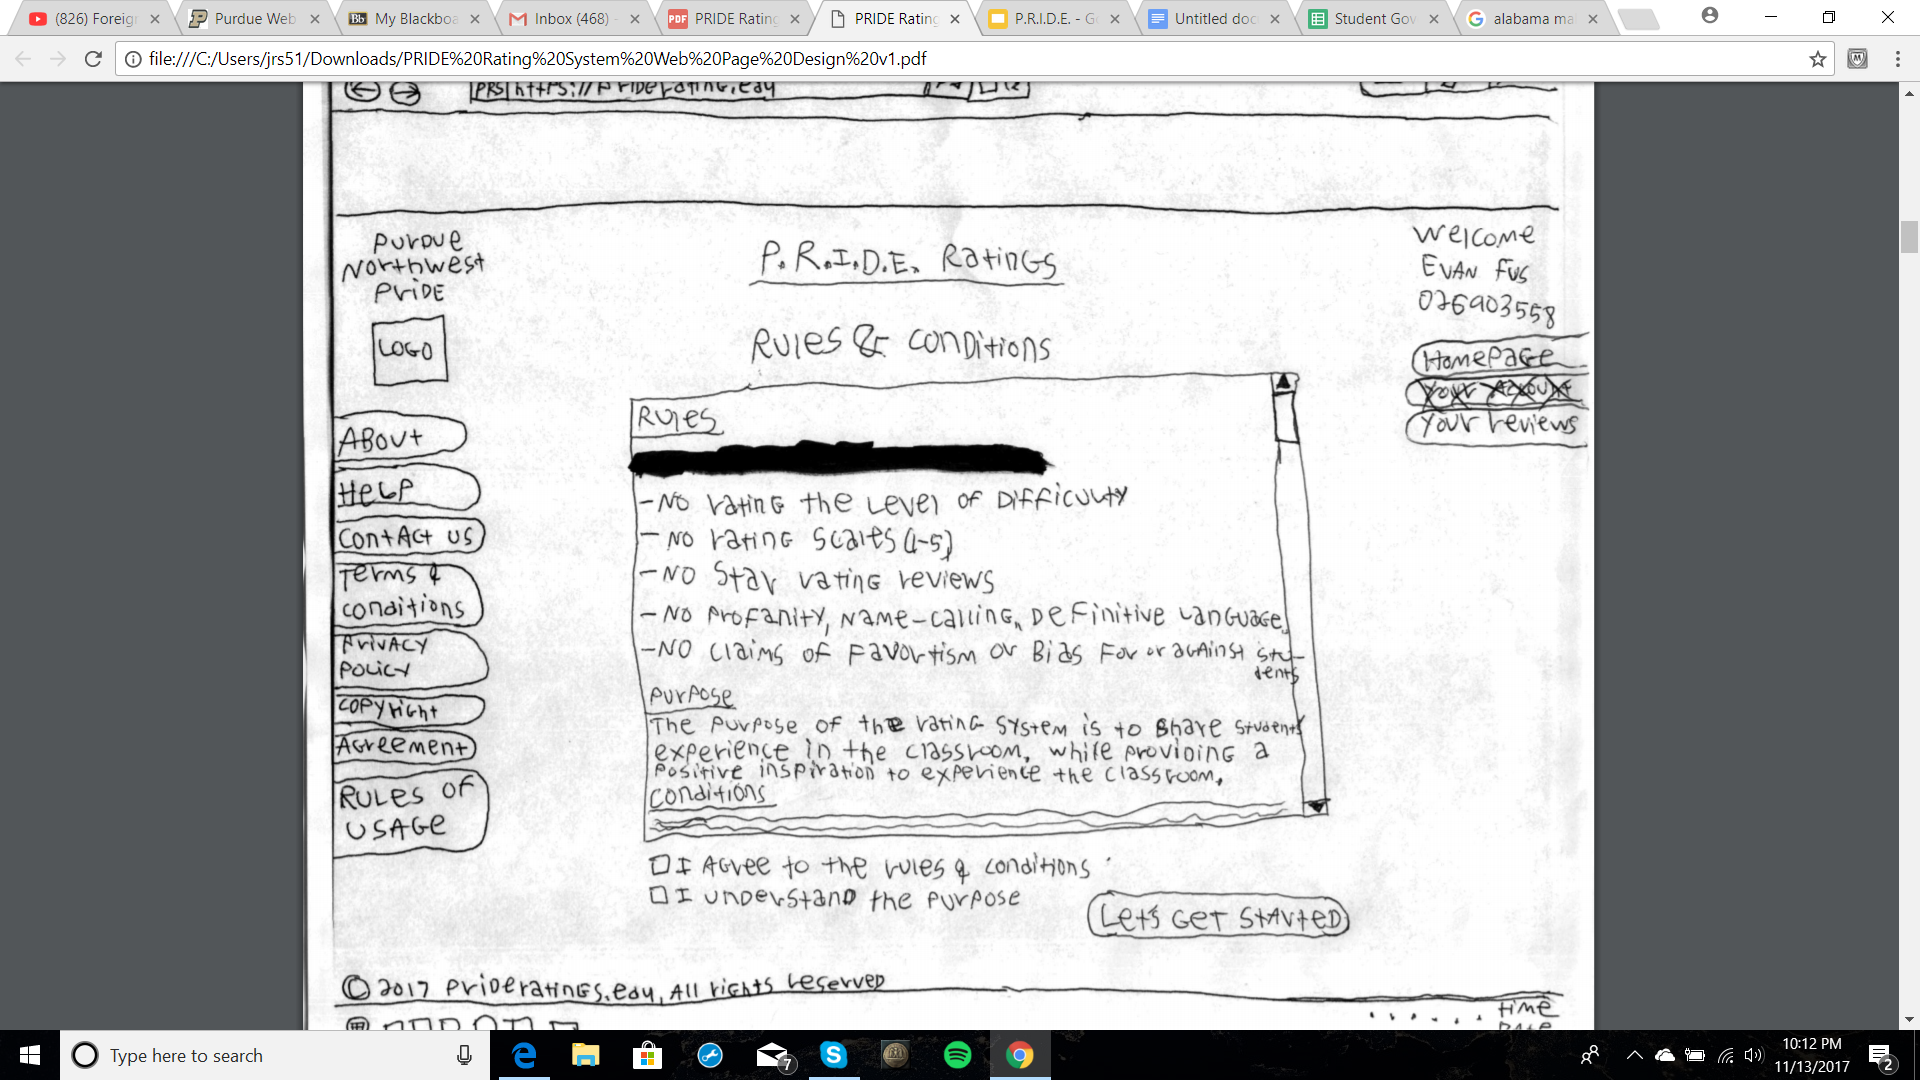 (826) Foreign
Purdue Web
My Blackboa
Inbox (468) -
PRIDE Rating
PRIDE Rating
P.R.I.D.E. - Go
Untitled doc
Student Gov
alabama ma
file:///C:/Users/jrs51/Downloads/PRIDE%20Rating%20System%20Web%20Page%20Design%20v1.pdf
PRS|https://priderating.edu
Purdue
Northwest
Pride
LOGO
About
Help
Contact us
Terms &
conditions
Privacy
Policy
Copyright
Agreement
Rules of
usage
P.R.I.D.E. Ratings
Rules & Conditions
Rules
- No rating the level of Difficulty
- No rating scales (1-5)
- No star rating reviews
- No profanity, name-calling, definitive language.
- No claims of favortism or Bias for or against stu-
dents
Purpose
The purpose of the rating system is to share students
experience in the classroom, while providing a
positive inspiration to experience the classroom.
Conditions
I Agree to the rules & conditions
I understand the purpose
Let's Get Started
Welcome
Evan Fus
026903558
Homepage
Your Account
Your reviews
© 2017 prideratings.edu, All rights reserved
Time
Date
Type here to search
7
10:12 PM
11/13/2017
2